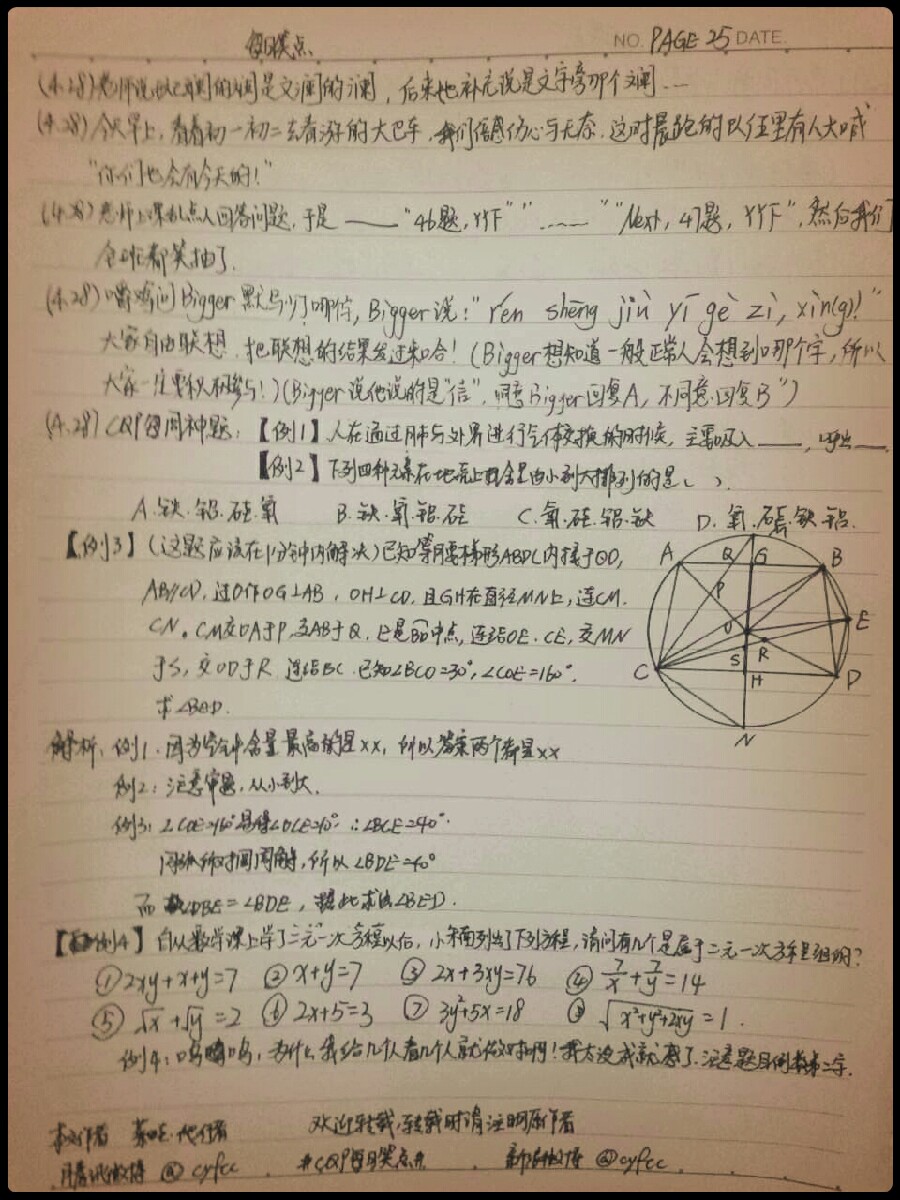 每日笑点 NO. PAGE 25 DATE.
(4.28) 老师说 的 是文澜的澜，后来他补充说是文字旁那个斓……
(4.28) 今天早上，看着初一初二去春游的大巴车，我们倍感伤心与无奈，这时晨跑的队伍里有人大喊
"你们也会有今天的！"
(4.28) 老师上课乱点人回答问题，于是 —— "46题，YYF" …… "Next，47题，YYF"，然后我们
全班都笑抽了。
(4.28) 问Bigger默写少了哪个字，Bigger说："rén shēng jiù yī gè zì，xìn(g)！"
大家自由联想，把联想的结果发过来哈！(Bigger想知道一般正常人会想到哪个字，所以
大家一定要积极参与！)(Bigger说他说的是"信"，同意Bigger回复A，不同意回复B")
(4.28) CQP每周神题：【例1】人在通过肺与外界进行气体交换的时候，主要吸入____，呼出____
【例2】下列四种元素在地壳上的含量由小到大排列的是( )。
A.铁.铝.硅.氧 B.铁.氧.铝.硅 C.氧.硅.铝.铁 D.氧.硅.铁.铝.
【例3】(这题应该在1分钟内解决)已知等腰梯形ABDC内接于⊙O，
AB∥CD，过O作OG⊥AB，OH⊥CD，且GH在直径MN上，连CM.
CN。CM交OA于P，交AB于Q，E是BD中点，连结OE.CE，交MN
于S，交OD于R.连结BC.已知∠BCO=30°，∠COE=160°.
求∠BED.
A Q G B P E O R S C H D N
解析：例1.因为空气中含量最高的是xx，所以答案两个都是xx
例2：注意审题，从小到大.
例3：∠COE=160°易得∠OCE=10°∴∠BCE=40°.
同弧所对同圆周角，所以∠BDE=40°
而∠DBE=∠BDE，据此求出∠BED.
【例4】自从数学课上学了二元一次方程以后，小朱同列出了下列方程，请问有几个是属于二元一次方程组的？
①2xy+x+y=7 ②x+y=7 ③2x+3xy=76 ④7/x+7/y=14
⑤√x+√y=2 ⑥2x+5=3 ⑦3y²+5x=18 ⑧√(x²+y²+2xy)=1.
例4：呜呜呜，为什么我给几个人看几个人就 啊！我 .注意题目倒数第二字.
本文作者 代作者 欢迎转载，转载时请注明原作者
腾讯微博 @cyfcc #CQP每日笑点# 新浪微博 @cyfcc